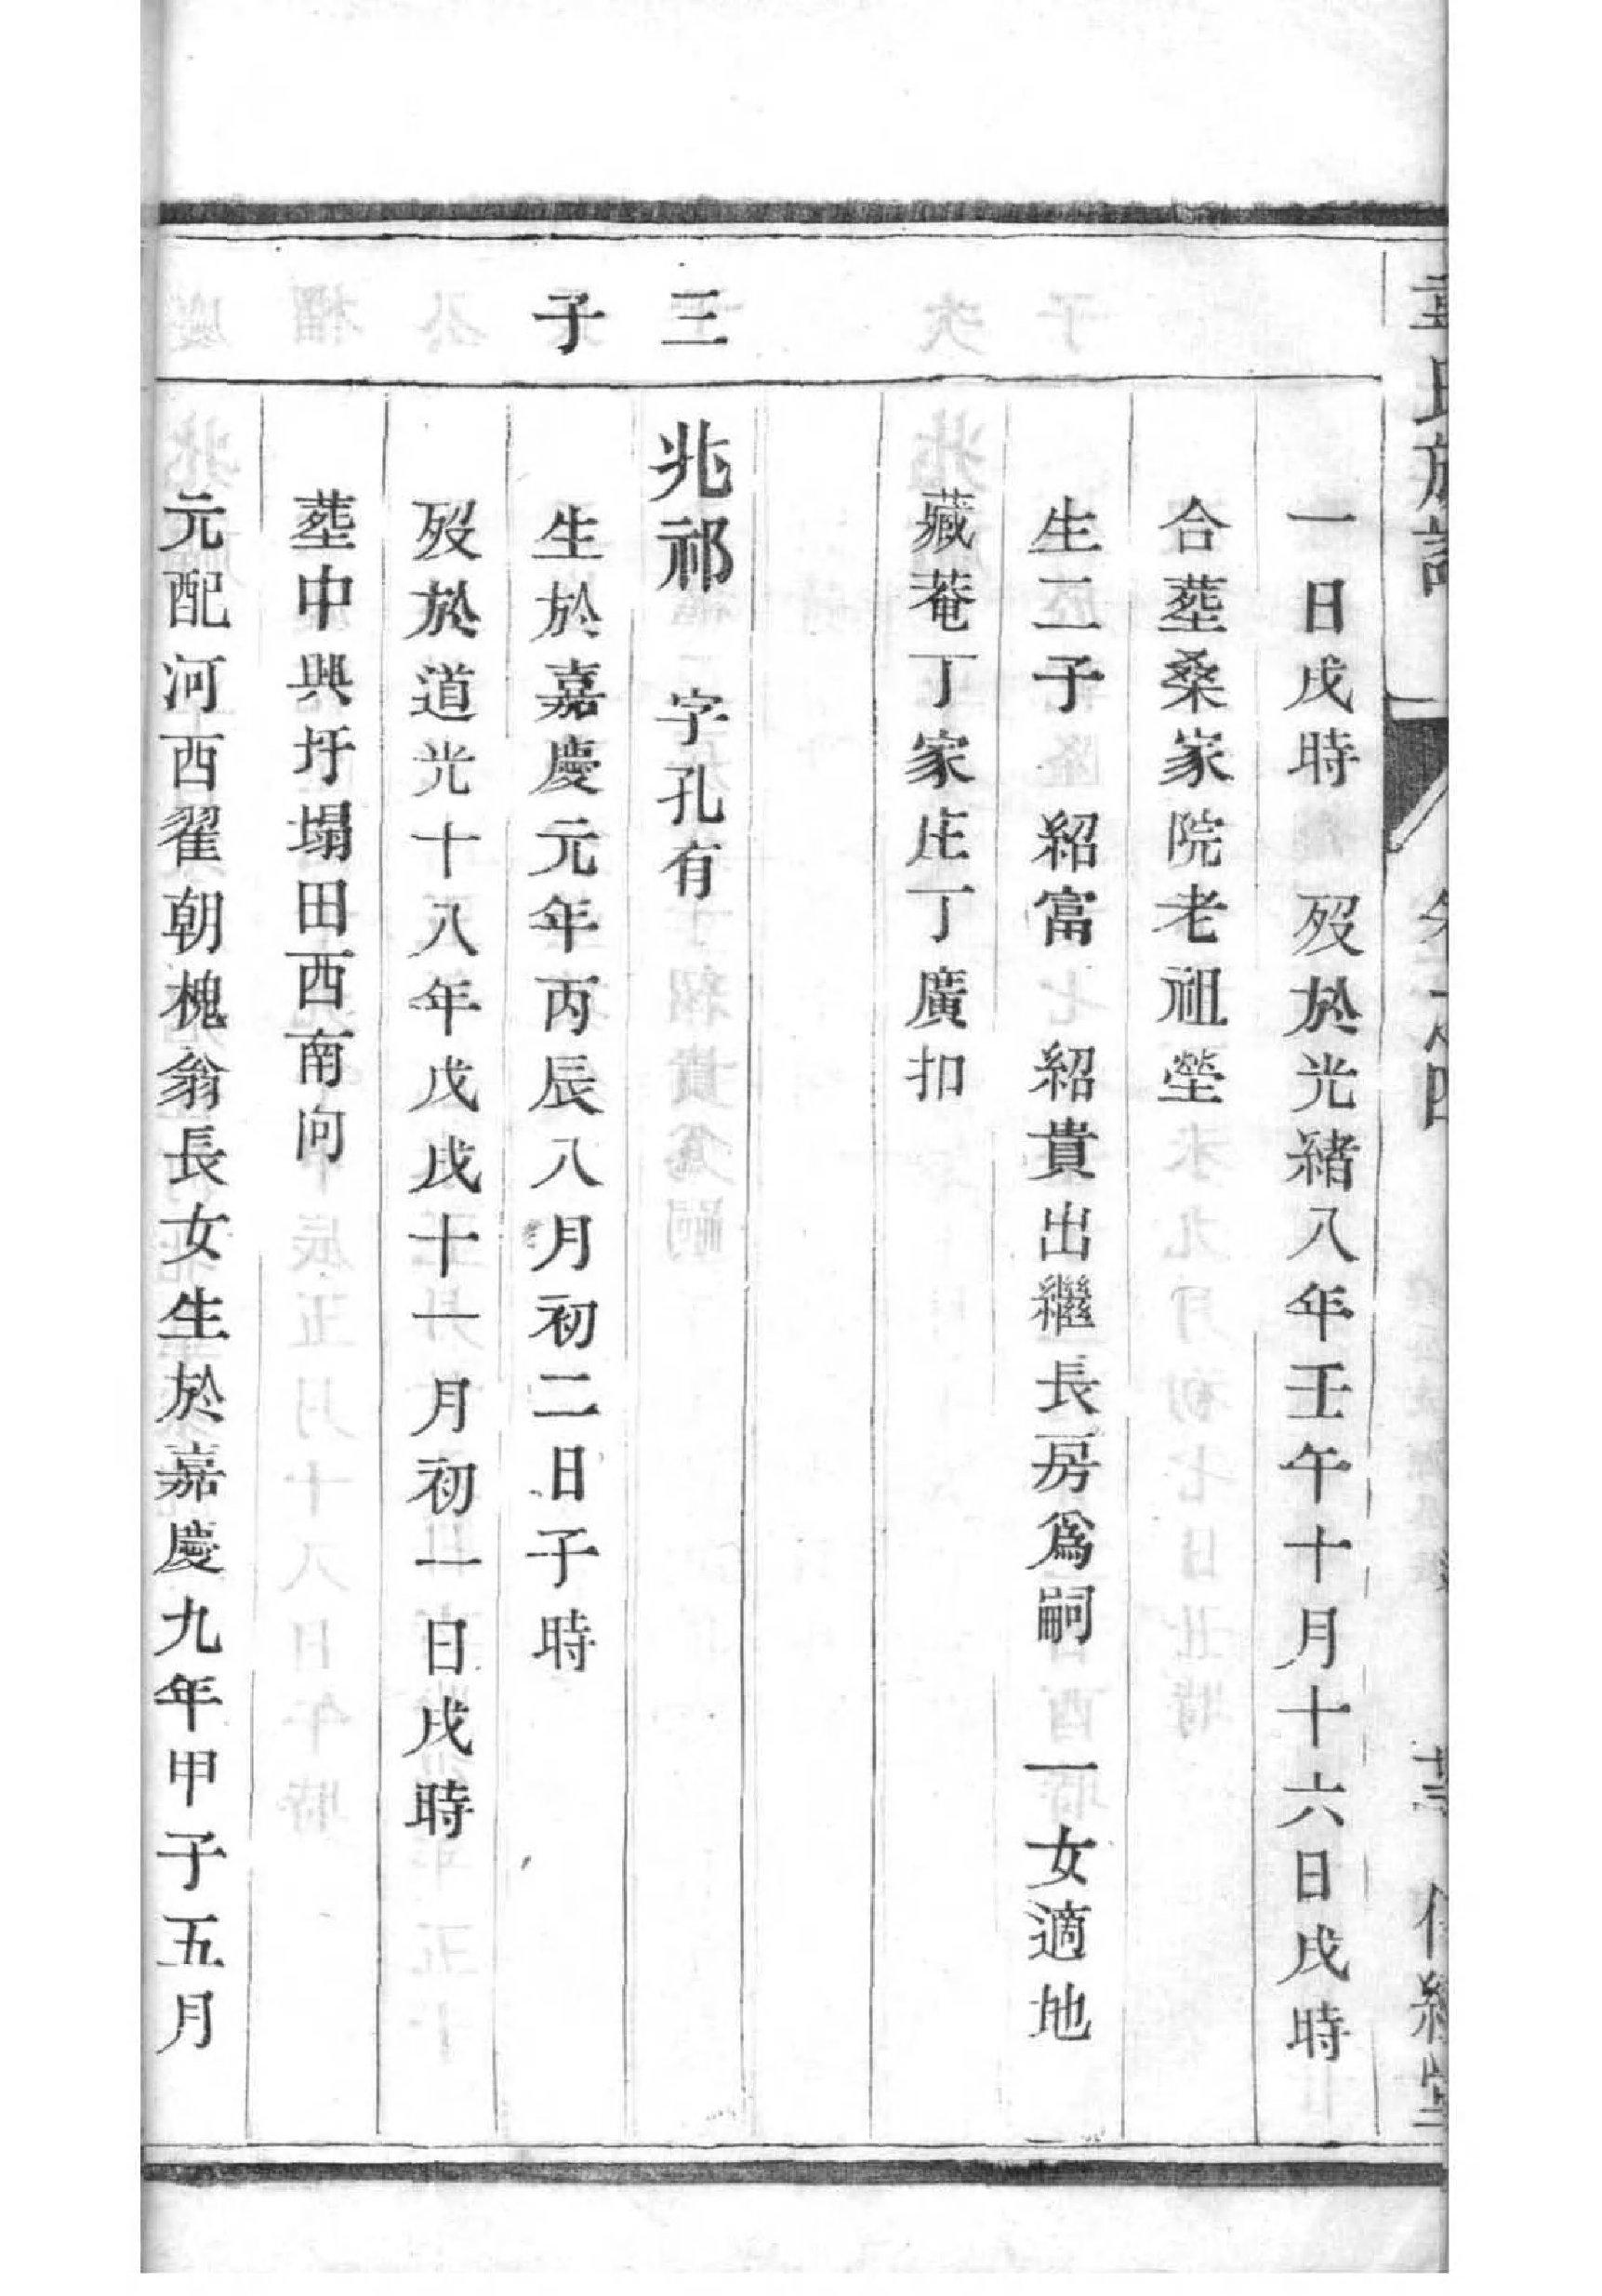 一日戌時　歿於光緒八年壬午十月十六日戌時
合塟桑家院老祖塋
生二子　紹富　紹貴出繼長房爲嗣　一女適地
藏菴丁家庄丁廣扣
三子
兆祁　字孔有
生於嘉慶元年丙辰八月初二日子時
歿於道光十八年戊戌十一月初一日戌時
塟中興圩塌田西南向
元配河西翟朝槐翁長女生於嘉慶九年甲子五月